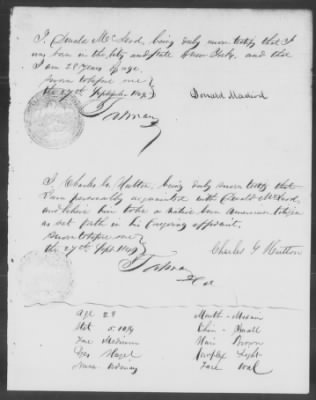 I, Donald McLeod, being duly sworn certify that I
was born in the city and State of New York, and that
I am 28 Years of age.
Sworn to before me }
the 27th September 1849 }
Donald MacLeod
I, Charles G. Hutton, being duly sworn certify that
I am personally acquainted with Donald McLeod,
and believe him to be a native born American Citizen
as set forth in his foregoing affidavit.
Sworn to before me }
the 27th Sept. 1849 }
Charles G Hutton
Age 28 Mouth - Medium
Chin - Small
Face Medium Hair Brown
Eyes Hazel Complex Light
Nose Ordinary Face Oval